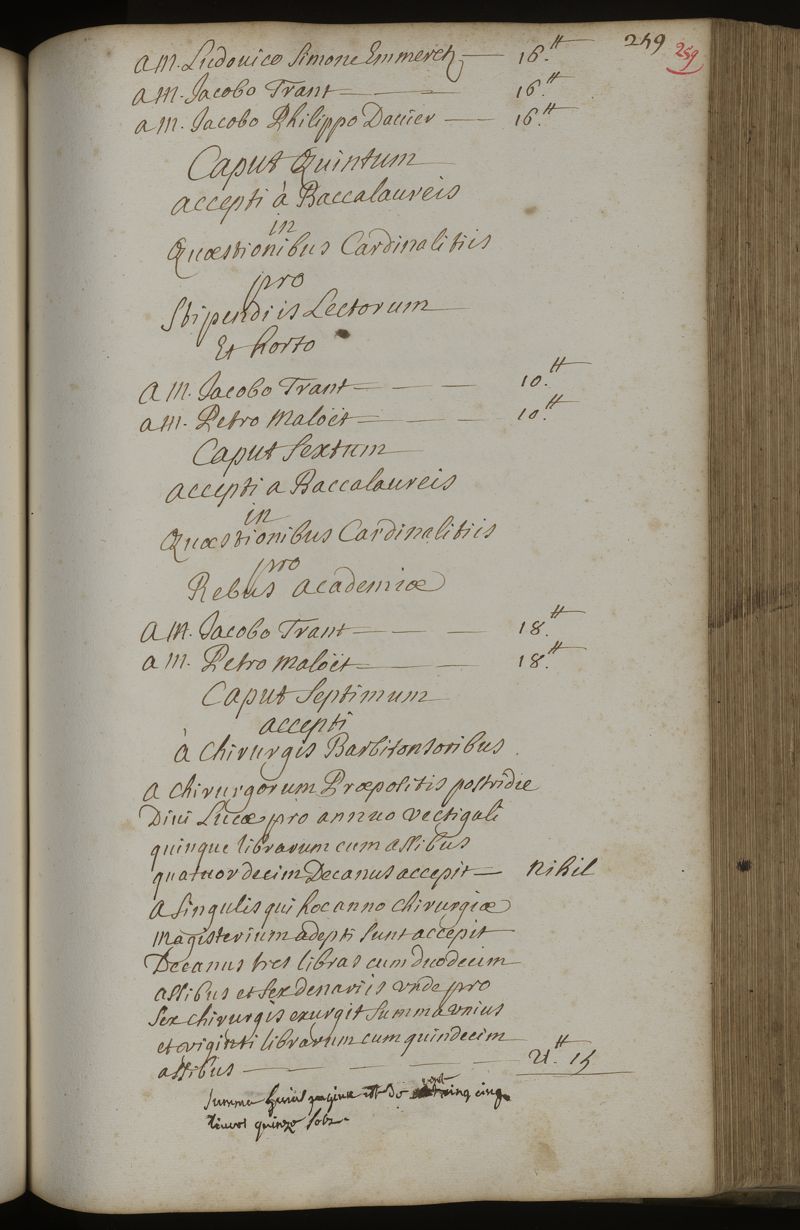 259 259
a M. Ludovico Simone Emmerez — 16.tt
a M. Jacobo Trant — 16.tt
a M. Jacobo Philippo Davier — 16.tt
Caput Quintum
accepti à Baccalaureis
in
Quæstionibus Cardinalitiis
pro
Stipendiis Lectorum
Et horto
a M. Jacobo Trant — 10.tt
a M. Petro Maloët — 10.tt
Caput Sextum
accepti a Baccalaureis
in
Quæstionibus Cardinalitiis
pro
Rebus academiæ
a M. Jacobo Trant — 18.tt
a M. Petro Maloët — 18.tt
Caput Septimum
accepti
à Chirurgis Barbitonsoribus
a chirurgorum Præpositis postridie
Divi Lucæ pro annuo vectigali
quinque librarum cum assibus
quatuordecim Decanus accepit — nihil
a singulis qui hoc anno chirurgiæ
Magisterium adepti sunt accepit
Decanus tres libras cum duodecim
assibus et sex denariis unde pro
sex chirurgis exurgit summa unius
et viginti librarum cum quindecim
assibus — 21.tt 15
Summa huius paginæ est de cent cinq
livres quinze sols.